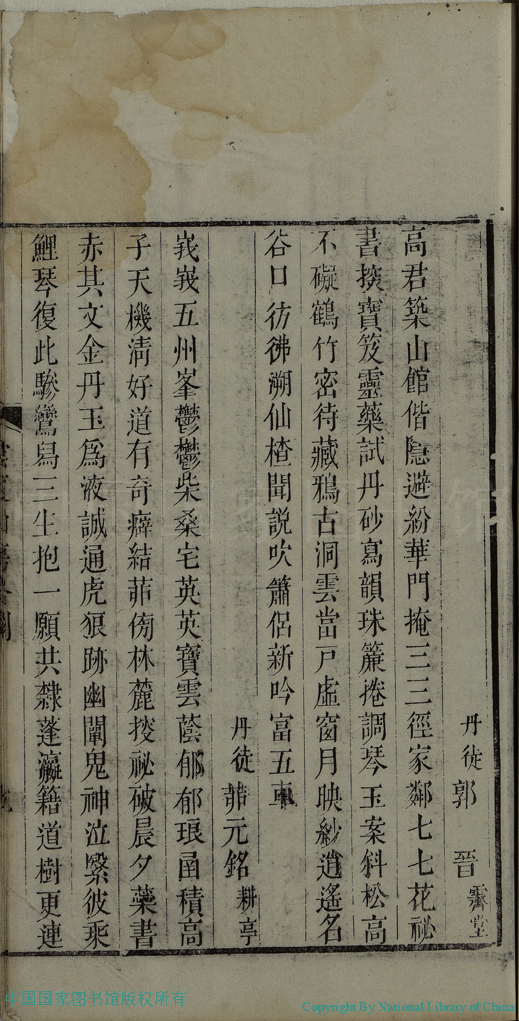 丹徒郭 晉霽堂
高君築山館偕隱避紛華門掩三三徑家鄰七七花祕
書探寶笈靈藥試丹砂寫韻珠簾捲調琴玉案斜松高
不礙鶴竹密待藏鴉古洞雲當戸虛窗月映紗逍遙名
谷口彷彿溯仙楂聞説吹簫侣新吟富五車
丹徒 元銘耕亭
峩峩五州峯鬱鬱柴桑宅英英寶雲蔭郁郁琅函積高
子天機清好道有奇癖結茆傍林麓探祕破晨夕藥書
赤其文金丹玉爲液誠通虎狼跡幽闡鬼神泣緊彼乘
鯉琴復此驂鸞舄三生抱一願共隸蓬瀛籍道樹更連
中国国家图书馆版权所有
Copyright By National Library of China